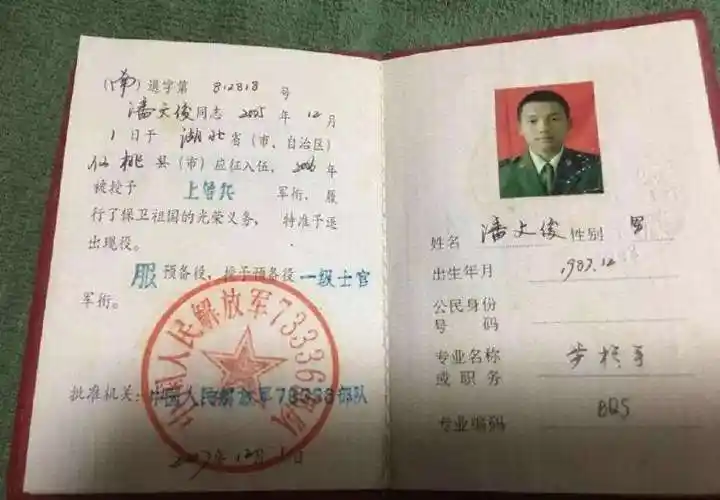 (南)退字第 812818 号
潘文俊同志 2005 年 12 月
1 日于 湖北 省(市、自治区)
仙桃 县(市)应征入伍, 2006 年
被授予 上等兵 军衔,履
行了保卫祖国的光荣义务,特准予退
出现役。
服 预备役,授予预备役 一级士官
军衔。
中国人民解放军73336部队
批准机关:中国人民解放军73336部队
2007年12月1日
姓名 潘文俊 性别 男
出生年月 1987.12
公民身份
号 码
专业名称 步枪手
或职务
专业编码 BQS